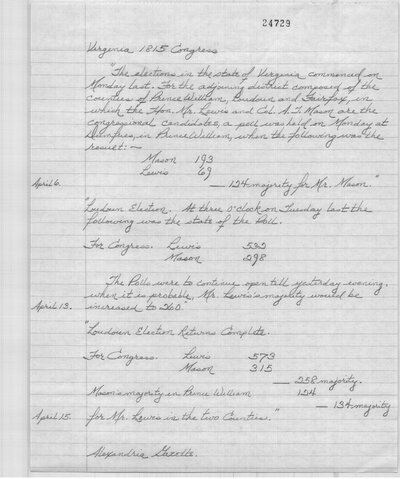 24729
Virginia 1815 Congress
"The elections in the state of Virginia commenced on
Monday last. For the adjoining district composed of the
counties of Prince William, Loudoun and Fairfax, in
which the Hon. Mr. Lewis and Col. A. T. Mason are the
congressional candidates, a poll was held on Monday at
Dumfries, in Prince William, when the following was the
result: —
Mason 193
Lewis 69
April 6. — 124 majority for Mr. Mason."
"Loudoun Election. At three O'clock on Tuesday last the
following was the state of the Poll.
For Congress. Lewis 532
Mason 298
The Polls were to continue open till yesterday evening,
when it is probable, Mr. Lewis's majority would be
April 13. increased to 260."
"Loudoun Election Returns Complete.
For Congress. Lewis 573
Mason 315
— 258 majority.
Mason's majority in Prince William 124
— 134 majority
April 15. for Mr. Lewis in the two Counties."
Alexandria Gazette.